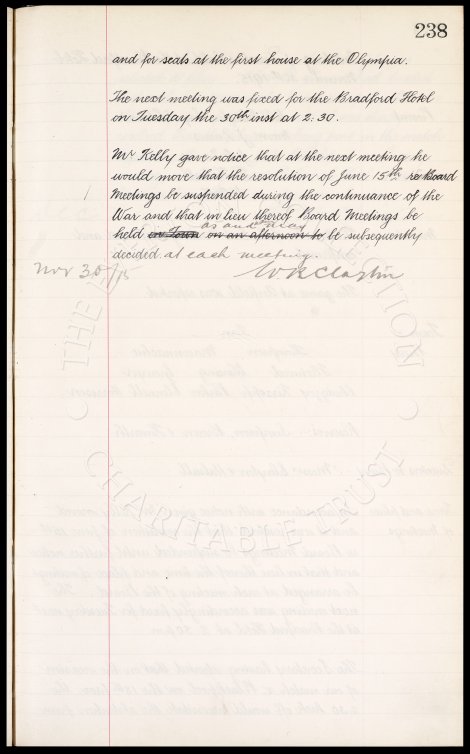 238
and for seats at the first house at the Olympia.
The next meeting was fixed for the Bradford Hotel
on Tuesday the 30th inst at 2:30.
Mr Kelly gave notice that at the next meeting he
would move that the resolution of June 15th re Board
Meetings be suspended during the continuance of the
War and that in lieu thereof Board Meetings be
as and may
held on Town on an afternoon to be subsequently
decided at each meeting.
Nov 30/15
THE
CHARITABLE TRUST